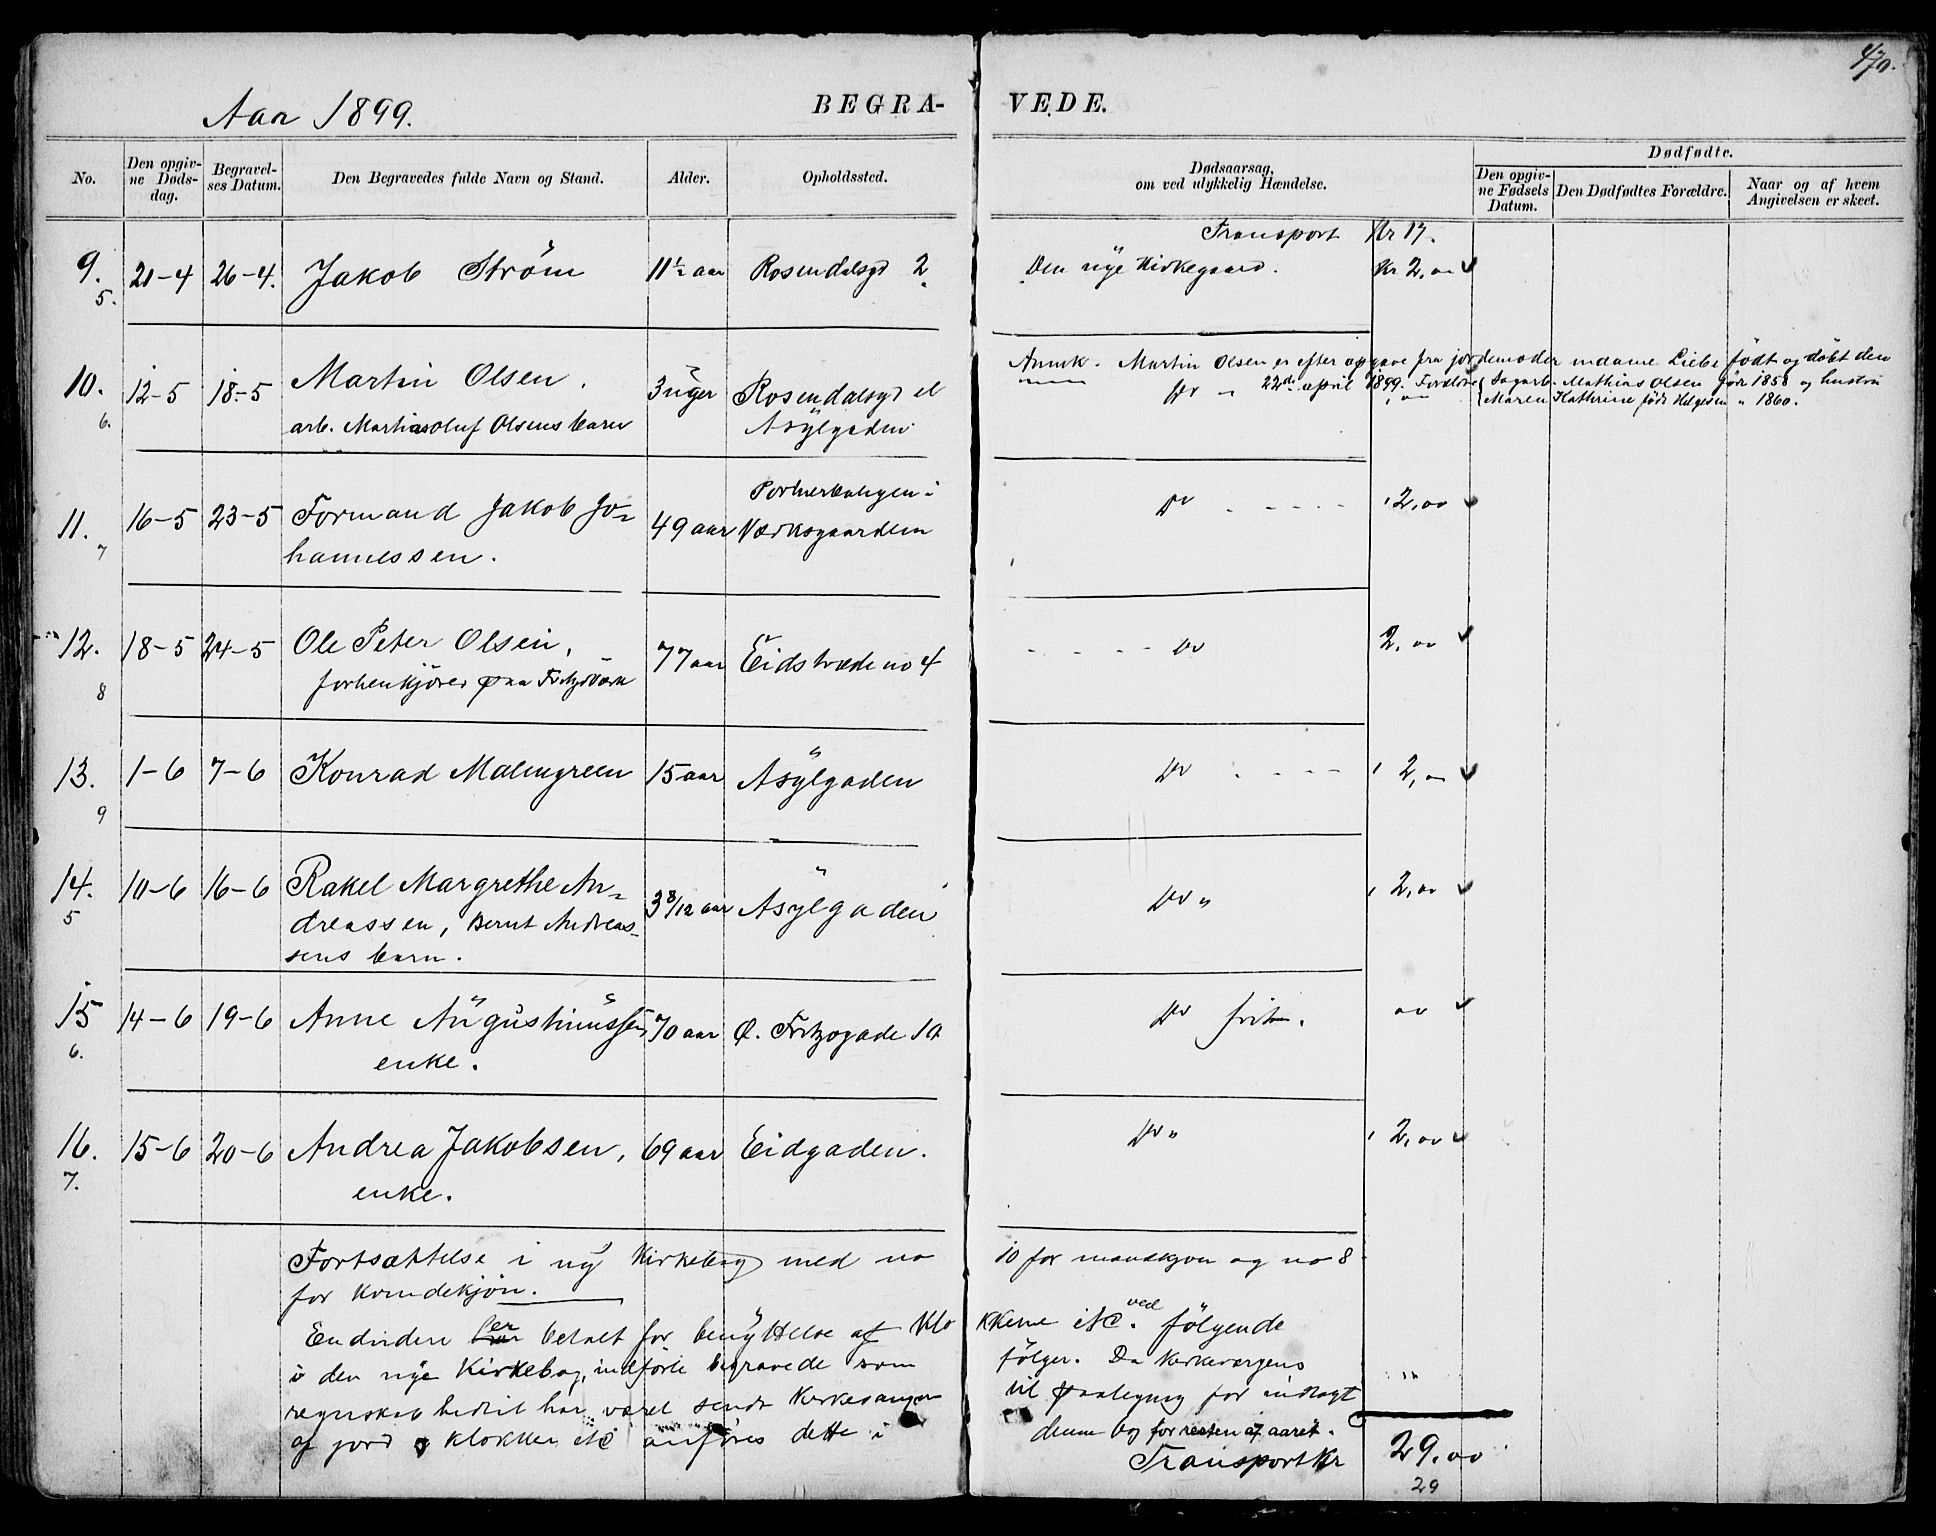 Aar 1899.
BEGRA-
VEDE.
No.
Den opgiv-
ne Døds-
dag.
Begravel-
ses Datum.
Den Begravedes fulde Navn og Stand.
Alder.
Opholdssted.
Dødsaarsag,
om ved ulykkelig Hændelse.
Dødfødte.
Den opgiv-
ne Fødsels
Datum.
Den Dødfødtes Forældre.
Naar og af hvem
Angivelsen er skeet.
Transport Kr 17.
9. 21-4 26-4. Jakob Strøm 11½ aar Rosendalsgd 2 Den nye Kirkegaard. Kr 2,00
5.
10. 12-5 18-5 Martin Olsen. 3 uger Rosendalsgd el Anmk. Martin Olsen er efter opgave fra jordemoder madame Liebe født og døbt den
6. arb. Mathias Oluf Olsens barn Asylgaden Do 22de april 1899. Forældre Sagarb. Mathias Olsen født 1858 og hustru
Maren Kathrine født Helgesen " 1860.
11. 16-5 23-5 Formand Jakob Jo= 49 aar Portnerboligen i Do 2,00
7 hannessen. Værksgaarden
12. 18-5 24-5 Ole Peter Olsen, 77 aar Eidstræde no 4 Do 2,00
8 forhenkjører paa Fritzøværk
13. 1-6 7-6 Konrad Malmgreen 15 aar Asylgaden Do 2,00
9
14. 10-6 16-6 Rakel Margrethe An= 3 8/12 aar Asylgaden Do " 2,00
5 dreassen, Bernt Andreas-
sens barn.
15 14-6 19-6 Anne Augustinussen, 70 aar Ø. Fritzøgade 10 Do frit. 00
6. enke.
16. 15-6 20-6 Andrea Jakobsen, 69 aar Eidgaden. Do " 2,00
7. enke.
Fortsættelse i ny Kirkebog med no 10 for mandkjøn og no 8
for kvindekjøn.
Endvidere er betalt for benyttelse af klokkerne etc. ved følgende
i den nye Kirkebog, indførte begravede som følger. Da kirkevergens
regnskab hertil har været sendt Kirkesanger til paategning for indlagt
af jord og klokker etc anføres dette i denne bog for resten af aaret.
Transport Kr 29.00
29